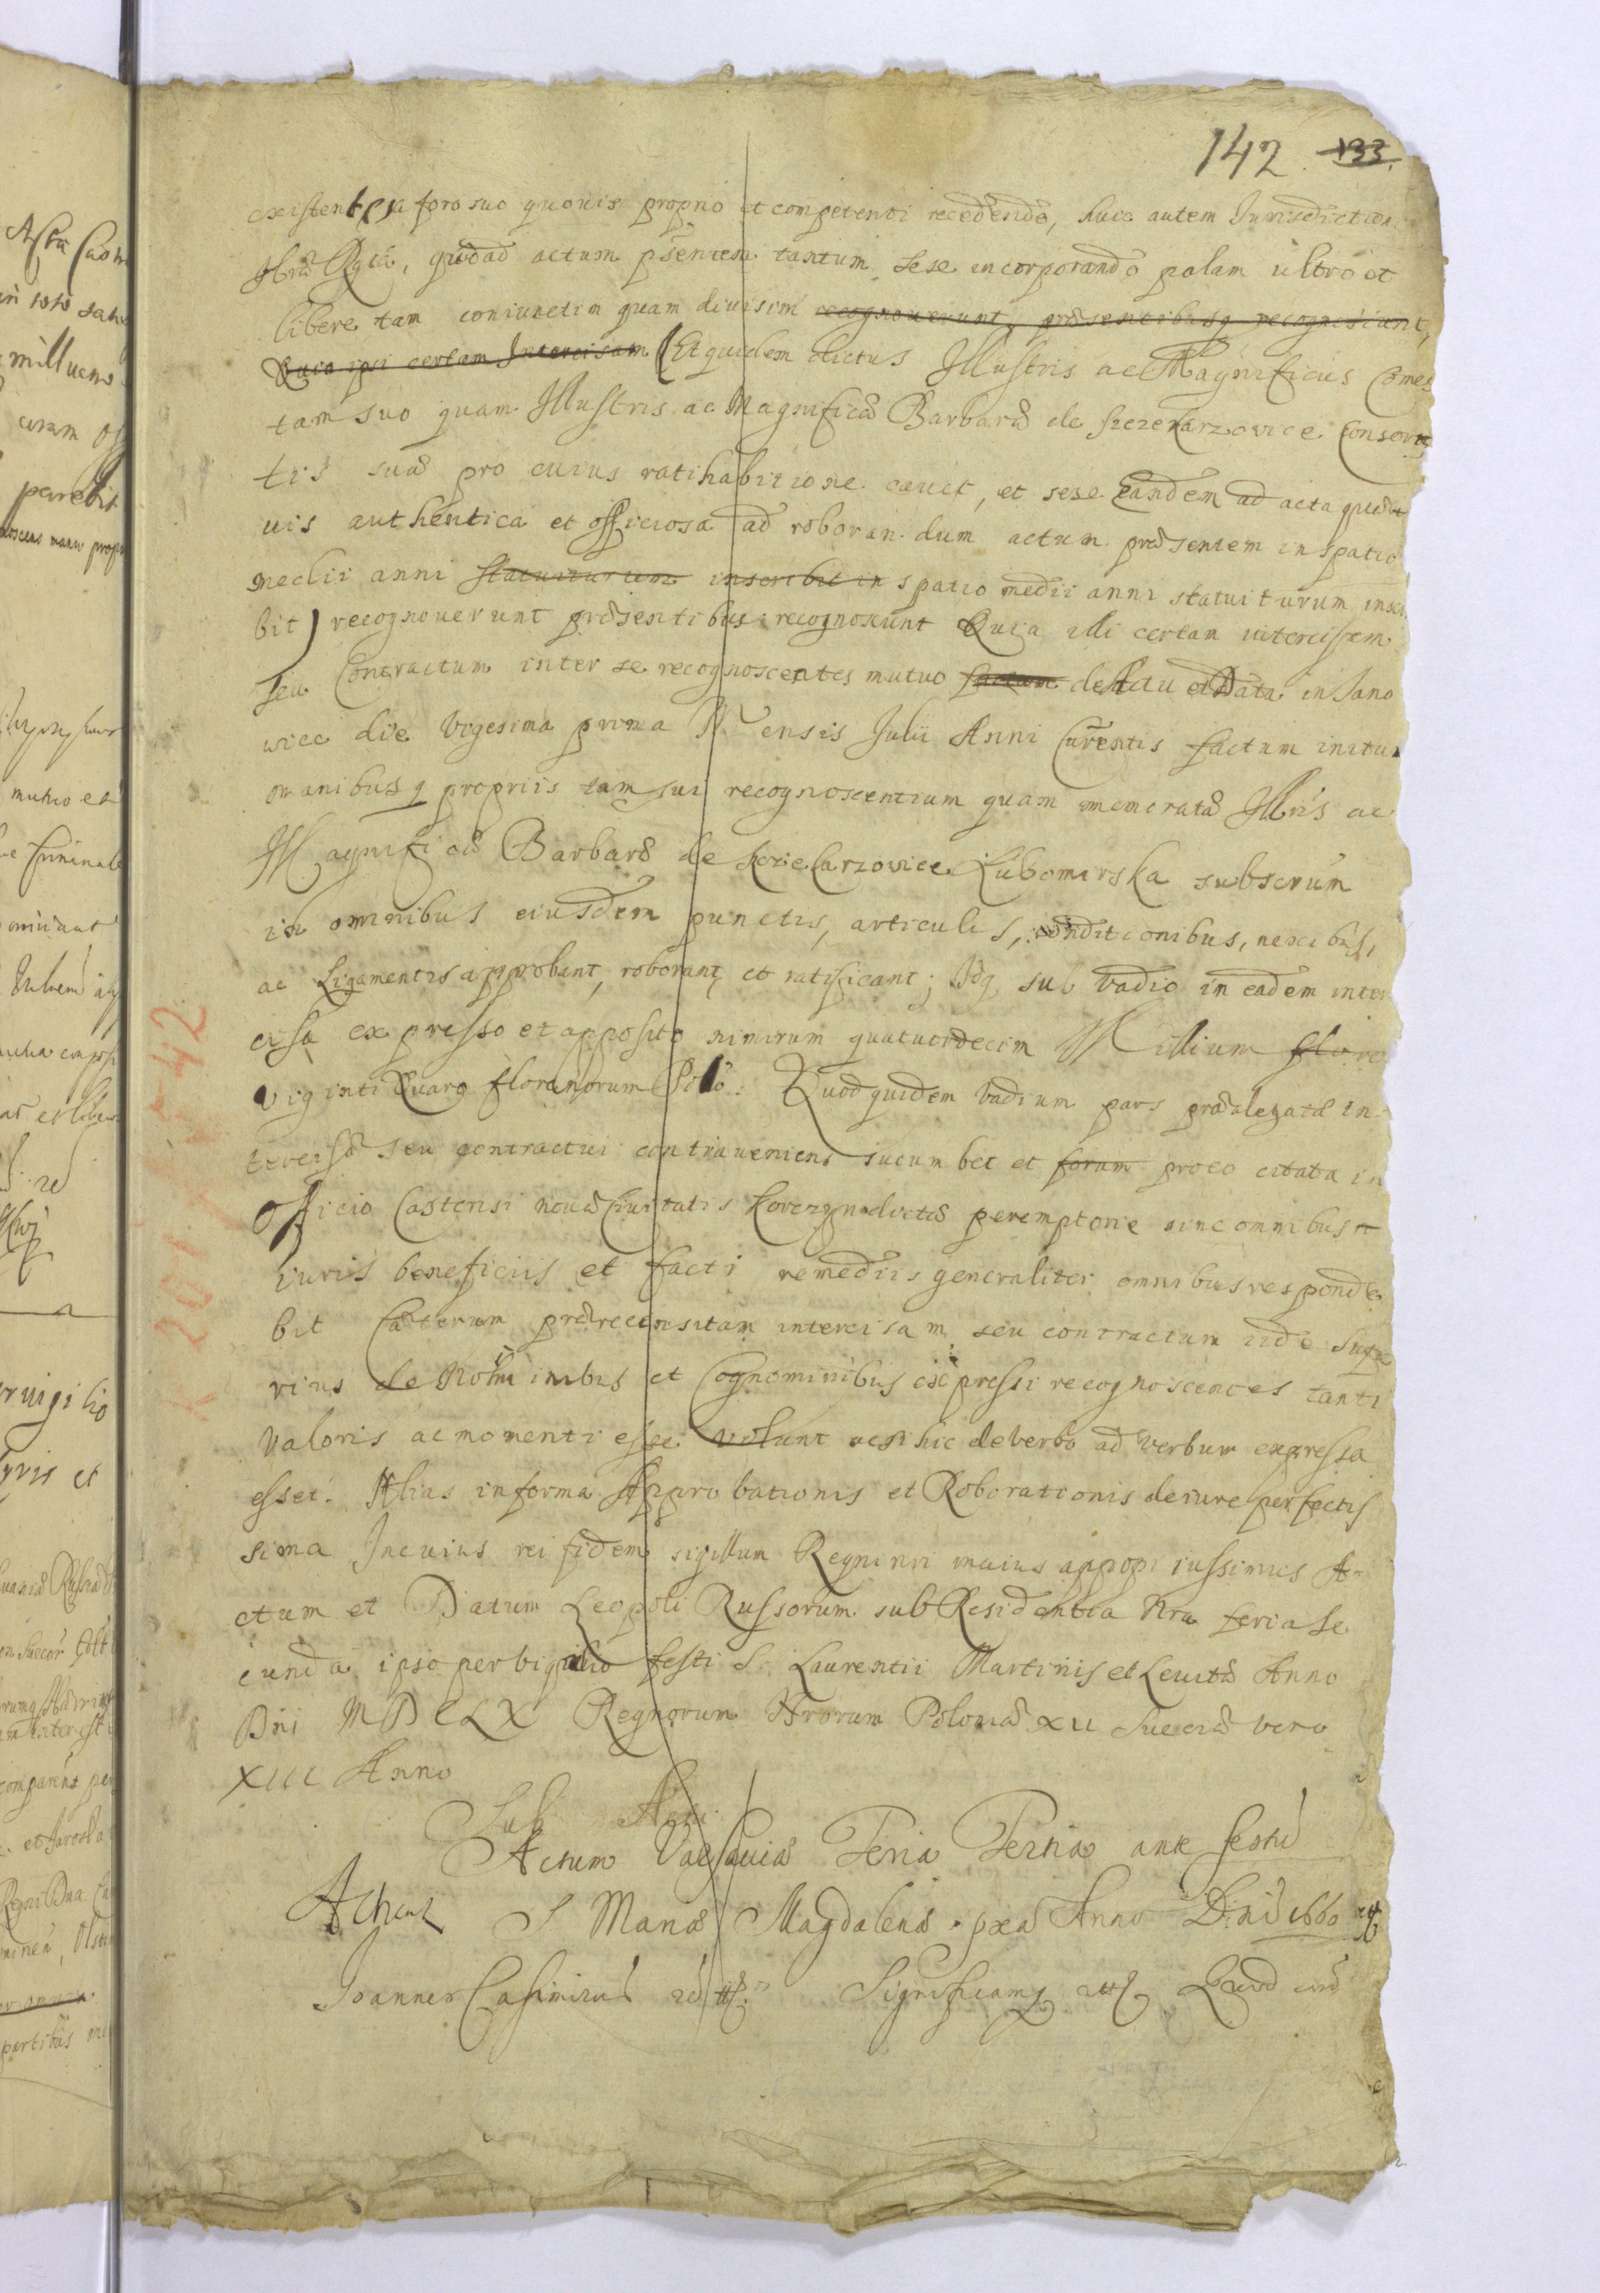 142 133.
existentes a foro suo quovis proprio et competenti recedendo, huic autem Jurisdictioni
Nrae Rgia, quoad actum pntem tantum sese incorporando palam ultro et
libere tam coniunctim quam divisim recognoverunt, praesentibusq recognoscunt,
Quia ipsi certam Intercisam (Et quidem dictus Illustris ac Magnificus Comes
tam suo quam Illustris ac Magnificae Barbarae de Szczekarzowice Consor
tis suae pro cuius ratihabitione cavet, et sese eandem ad acta quae
vis authentica et officiosa ad roboran dum actum praesentem in spatio
medii anni statuiturum inscribit in spatio medii anni statuiturum inscri
bit) recognoverunt praesentibus recognoscunt Quia illi certam intercisam
seu Contractum inter se recognoscentes mutuo factum de Actu et Data in Jano
wiec die Vigesima prima Mensis Julii Anni Currentis factum initu
manibusq propriis tam sui recognoscentium quam memoratae Illris ac
Magnificae Barbarae de Szczekarzowice Lubomirska subscrum
in omnibus eiusdem punctis, articulis, conditionibus, nexibus,
ac Ligamentis approbant, roborant et ratificant; Idq sub vadio in eadem inter
cisa expresso et apposito nimirum quatuordecim Millium flore
viginti Quarq florenorum Polo: Quod quidem vadium pars praeallegatae in
tercisae seu contractui contraveniens sucumbet et forum pro eo citata in
Officio Castensi novae Civitatis Korczyn advictas peremptorie sine omnibus
iuris beneficiis et facti remediis generaliter omnibus responde
bit Caeterum praerecensitam intercisam seu contractum iide supe
rius de Nominibus et Cognominibus expressi recognoscentes tanti
valoris ac momenti esse volunt ac si hic de verbo ad verbum expressa
esset. Alias in forma Approbationis et Roborationis de iure perfectis
sima In cuius rei fidem sigillum Regni nri maius appopi iussimus A
ctum et Datum Leopoli Russorum sub Residentia Nra feria se
cunda ipso pervigilio festi S. Laurentii Martiris et Levitae Anno
Dni MDCLX Regnorum Nrorum Poloniae XII Sueciae vero
XIII Anno
Sub Acti
Actum Varsaviae Feria Tertia ante festu
S Mariae Magdalenae pxa Anno Dni 1660
Joannes Casimirus Significamq Quod